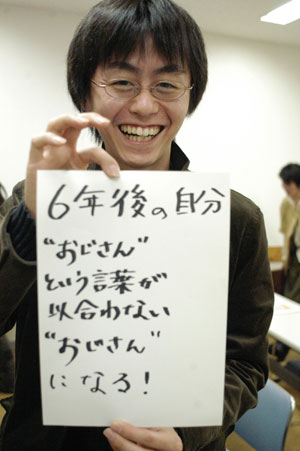 6年後の自分
"おじさん"
という言葉が
似合わない
"おじさん"
になる!